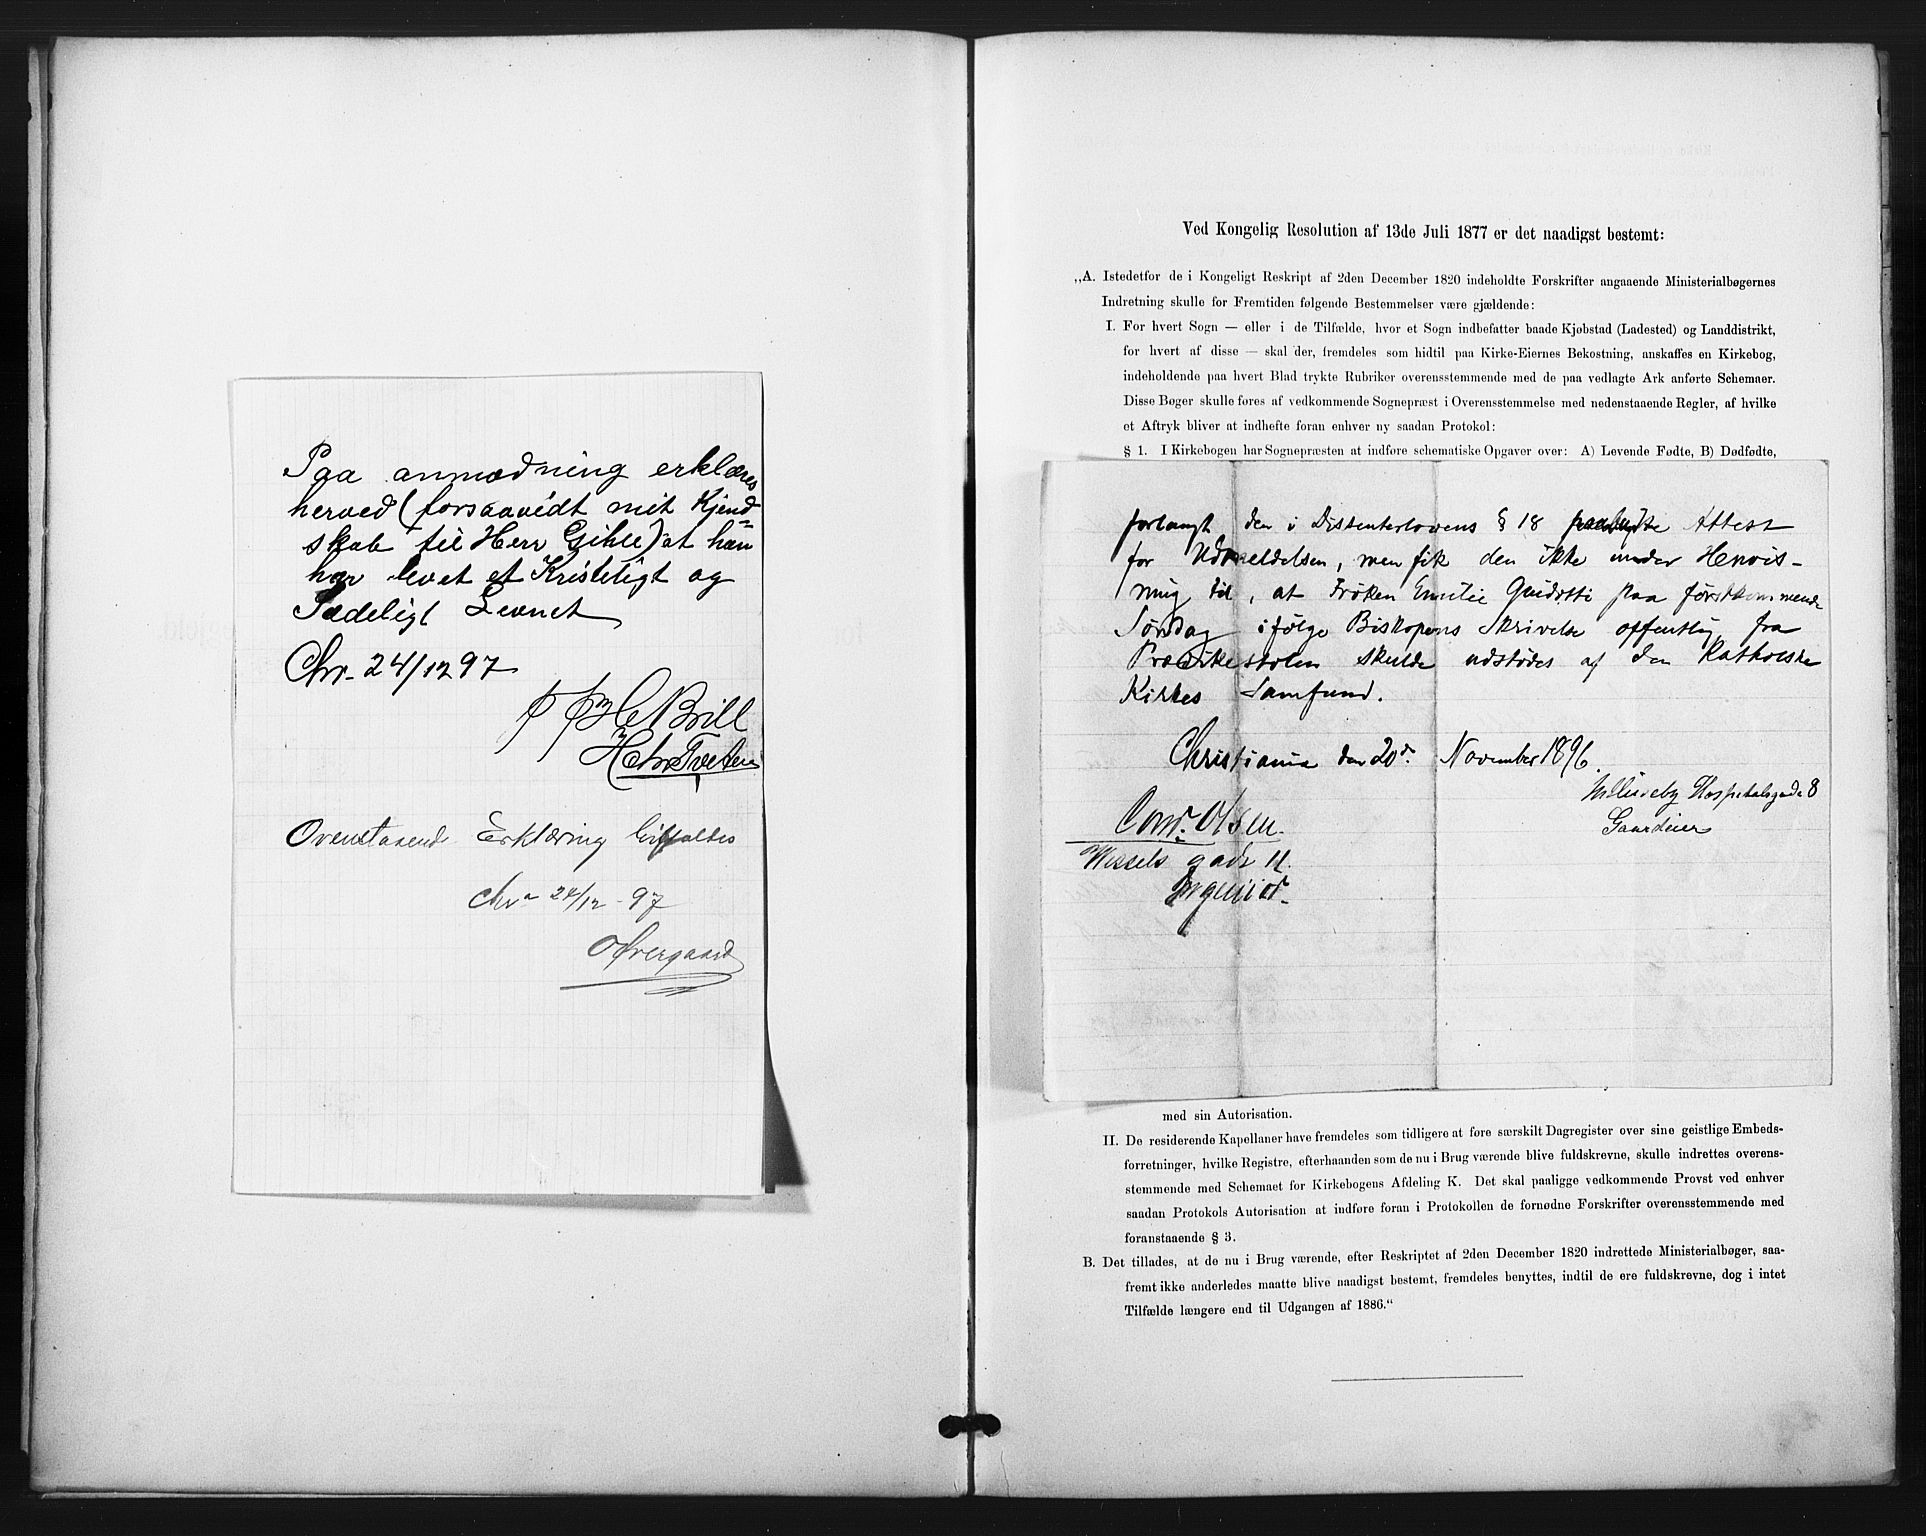 Paa anmodning erklæres
herved (forsaavidt mit Kjend=
skab til Herr Gihle) at han
har levet et Kristeligt og
Sædeligt Levnet
Chr. 24/12 97
HC Brill
Ovenstaaende Erklæring
Chra 24/12 - 97
Overgaard
Ved Kongelig Resolution af 13de Juli 1877 er det naadigst bestemt:
„A. Istedetfor de i Kongeligt Reskript af 2den December 1820 indeholdte Forskrifter angaaende Ministerialbøgernes
Indretning skulle for Fremtiden følgende Bestemmelser være gjældende:
I. For hvert Sogn — eller i de Tilfælde, hvor et Sogn indbefatter baade Kjøbstad (Ladested) og Landdistrikt,
for hvert af disse — skal der, fremdeles som hidtil paa Kirke-Eiernes Bekostning, anskaffes en Kirkebog,
indeholdende paa hvert Blad trykte Rubriker overensstemmende med de paa vedlagte Ark anførte Schemaer.
Disse Bøger skulle føres af vedkommende Sognepræst i Overensstemmelse med nedenstaaende Regler, af hvilke
et Aftryk bliver at indhefte foran enhver ny saadan Protokol:
§ 1. I Kirkebogen har Sognepræsten at indføre schematiske Opgaver over: A) Levende Fødte, B) Dødfødte,
forlangt den i Dissenterlovens § 18 paabudte Attest
for Udmeldelsen, men fik den ikke under Henvis-
ning til, at Frøken Emilie Guidotti paa førstkommende
Søndag ifølge Biskopens Skrivelse offentlig fra
Prædikestolen skulde udstødes af den Katholske
Kirkes Samfund.
Christiania den 20d. November 1896.
Hospitalsgade 8
Gaardeier
Conr. Olsen.
Wessels gade 11.
Ingeniør.
med sin Autorisation.
II. De residerende Kapellaner have fremdeles som tidligere at føre særskilt Dagregister over sine geistlige Embeds-
forretninger, hvilke Registre, efterhaanden som de nu i Brug værende blive fuldskrevne, skulle indrettes overens-
stemmende med Schemaet for Kirkebogens Afdeling K. Det skal paaligge vedkommende Provst ved enhver
saadan Protokols Autorisation at indføre foran i Protokollen de fornødne Forskrifter overensstemmende med
foranstaaende § 3.
B. Det tillades, at de nu i Brug værende, efter Reskriptet af 2den December 1820 indrettede Ministerialbøger, saa-
fremt ikke anderledes maatte blive naadigst bestemt, fremdeles benyttes, indtil de ere fuldskrevne, dog i intet
Tilfælde længere end til Udgangen af 1886.“